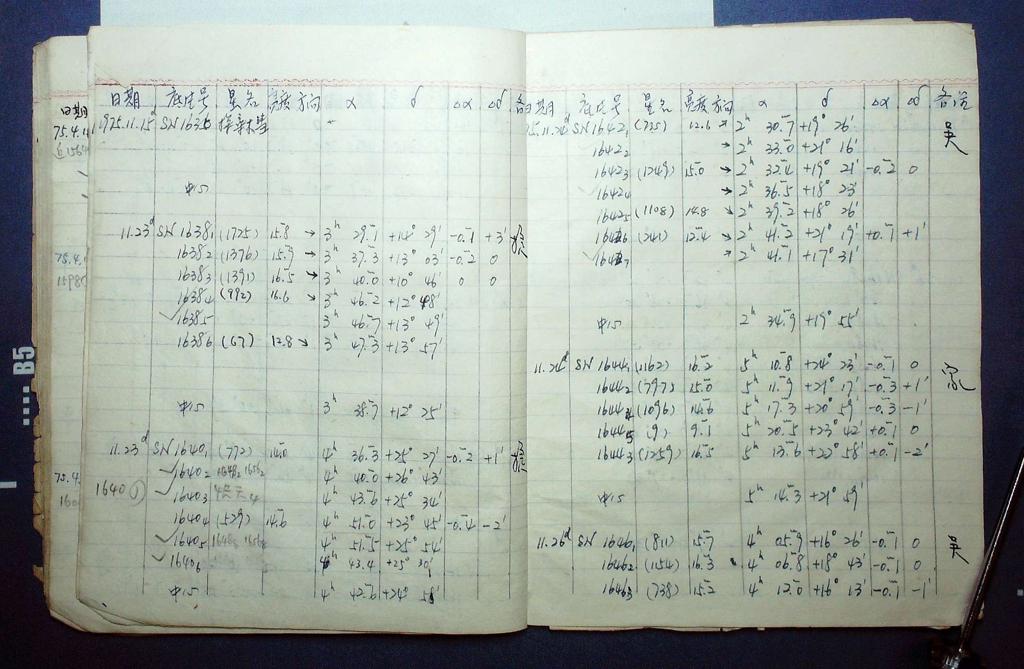 日期 底片号 星名 亮度 方向 α δ Δα Δδ
1975.11.15d SN1635
中心
11.23d SN1638₁ (1725) 15.8 → 3h 29.1 +14° 29' -0.1 +3'
1638₂ (1376) 15.9 → 3h 37.3 +13° 03' -0.2 0
1638₃ (1391) 16.5 → 3h 40.0 +10° 46' 0 0
1638₄ (992) 16.6 → 3h 46.2 +12° 48'
1638₅ 3h 46.7 +13° 49'
1638₆ (67) 12.8 → 3h 47.3 +13° 57'
中心 3h 38.7 +12° 25'
11.23d SN1640₁ (772) 14.0 4h 36.3 +25° 27' -0.2 +1'
1640₂ 4h 40.0 +26° 43'
1640 ① 1640₃ 4h 43.6 +25° 34'
1640₄ (529) 14.6 4h 51.0 +23° 45' -0.4 -2'
1640₅ 4h 51.5 +25° 54'
1640₆ 4h 43.4 +25° 30'
中心 4h 42.6 +24°
日期
75.4.
B5
日期 底片号 星名 亮度 方向 α δ Δα Δδ 备注
75.11.24d SN1642₁ (725) 12.6 → 2h 30.7 +19° 26' 吴
1642₂ → 2h 33.0 +21° 16'
1642₃ (1249) 15.0 → 2h 32.4 +19° 21' -0.2 0
1642₄ → 2h 36.5 +18° 23'
1642₅ (1108) 14.8 → 2h 39.2 +18° 26'
1642₆ (241) 12.4 → 2h 41.2 +21° 19' +0.1 +1'
1642₇ → 2h 41.1 +17° 31'
中心 2h 34.9 +19° 55'
11.24d SN1644₁ (1162) 16.2 5h 10.8 +24° 23' -0.1 0
1644₂ (797) 15.0 5h 11.9 +21° 17' -0.3 +1'
1644₄ (1096) 14.6 5h 17.3 +20° 59' -0.3 -1'
1644₅ (9) 9.1 5h 20.5 +23° 42' +0.1 0
1644₃ (1259) 16.5 5h 13.6 +22° 58' +0.1 -2'
中心 5h 14.3 +21° 59'
11.26d SN1646₁ (811) 15.7 4h 05.9 +16° 26' -0.1 0 吴
1646₂ (154) 16.3 4h 06.8 +18° 43' -0.1 0
1646₃ (738) 15.2 4h 12.0 +16° 13' -0.1 -1'